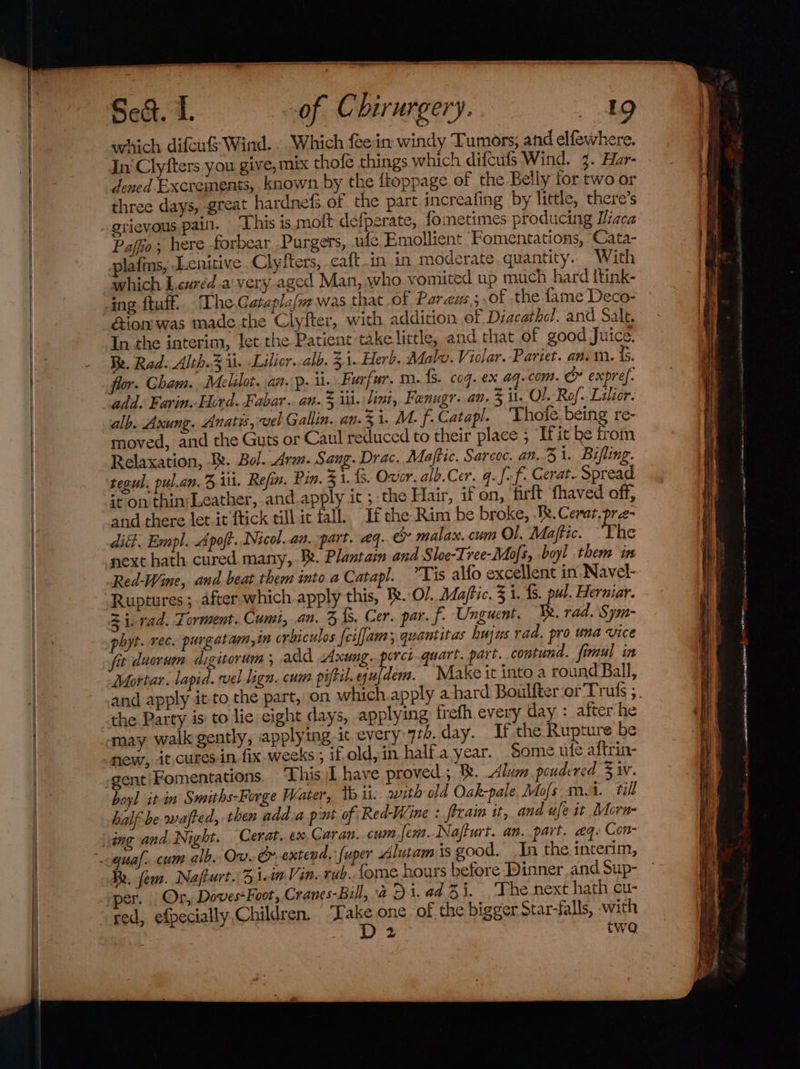 Sect. I. of Chirurgery. 19
which diſcuſs Wind. Which ſee in windy Tumors, and elſewhere.
In Clyſters you give, mix thoſe things which diſcuſs Wind. 3. Har-
dened Excrements, known by the ſtoppage of the Belly for two or
three days, great hardneſs of the part increaſing by little, there's
grievous pain. This is moſt deſperate, ſometimes producing Iliaca
Paſſio; here forbear Purgers, uſe Emollient Fomentations, Cata-
plaſms, Lenitive Clyſters, caſt in in moderate quantity. With
which I cured a very aged Man, who vomited up much hard ſtink-
ing ſtuff. The Cataplaſm was that of Paraeus; of the ſame Deco-
ction was made the Clyſter, with addition of Diacathol. and Salt.
In the interim, let the Patient take little, and that of good Juice.
℞. Rad. Alth. ℥ ii. Lilior. alb. ℥ i. Herb. Malv. Violar. Pariet. an. m. ſs.
flor. Cham. Melilot. an. p. ii. Furfur. m. ſs. coq. ex aq. com. & expreſ.
add. Farin. Hord. Fabar. an. ℥ iii. lini, Fœnugr. an. ℥ ii. Ol. Roſ. Lilior.
alb. Axung. Anatis, vel Gallin. an. ℥ i. M. f. Catapl. Thoſe being re-
moved, and the Guts or Caul reduced to their place; If it be from
Relaxation, ℞. Bol. Arm. Sang. Drac. Maſtic. Sarcoc. an. ℥ i. Biſling.
tegul. pul. an. ℥ iii. Reſin. Pin. ℥ i. ſs. Ovor. alb. Cer. q. ſ. f. Cerat. Spread
it on thin Leather, and apply it; the Hair, if on, firſt ſhaved off,
and there let it ſtick till it fall. If the Rim be broke, ℞. Cerat. præ-
dict. Empl. Apoſt. Nicol. an. part. æq. & malax. cum Ol. Maſtic. The
next hath cured many, ℞. Plantain and Sloe-Tree-Moſs, boyl them in
Red-Wine, and beat them into a Catapl. 'Tis alſo excellent in Navel-
Ruptures; after which apply this, ℞. Ol. Maſtic. ℥ i. ſs. pul. Herniar.
℥ i. rad. Torment. Cumi, an. ℥ ſs. Cer. par. f. Unguent. ℞. rad. Sym-
phyt. rec. purgatam, in orbiculos ſciſſam; quantitas hujus rad. pro una vice
ſit duorum digitorum; add Axung. porci quart. part. contund. ſimul in
Mortar. lapid. vel lign. cum piſtil. ejuſdem. Make it into a round Ball,
and apply it to the part, on which apply a hard Boulſter or Truſs;
the Party is to lie eight days, applying freſh every day: after he
may walk gently, applying it every 7th. day. If the Rupture be
new, it cures in ſix weeks; if old, in half a year. Some uſe aſtrin-
gent Fomentations. This I have proved; ℞. Alum poudered ℥ iv.
boyl it in Smiths-Forge Water, ℔ ii. with old Oak-pale Moſs m. i. till
half be waſted, then add a pint of Red-Wine: ſtrain it, and uſe it Morn-
ing and Night. Cerat. ex Caran. cum ſem. Naſturt. an. part. æq. Con-
quaſ. cum alb. Ov. & extend. ſuper Alutam is good. In the interim,
℞. ſem. Naſturt. ℥ i. in Vin. rub. ſome hours before Dinner and Sup-
per. Or, Doves-Foot, Cranes-Bill, à ℈ i. ad ℥ i. The next hath cu-
red, eſpecially Children. Take one of the bigger Star-falls, with
D 2 two